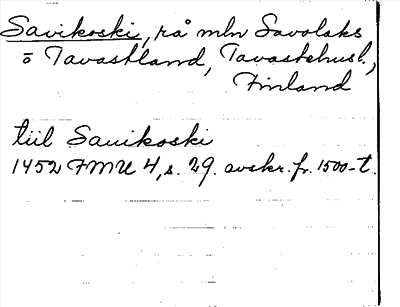 Savikoski, rå mln Savolaks
o Tavastland, Tavastehusl.,
Finland
tiil Sauikoski
1452 FMU 4, s. 29. avskr. fr. 1500-t.